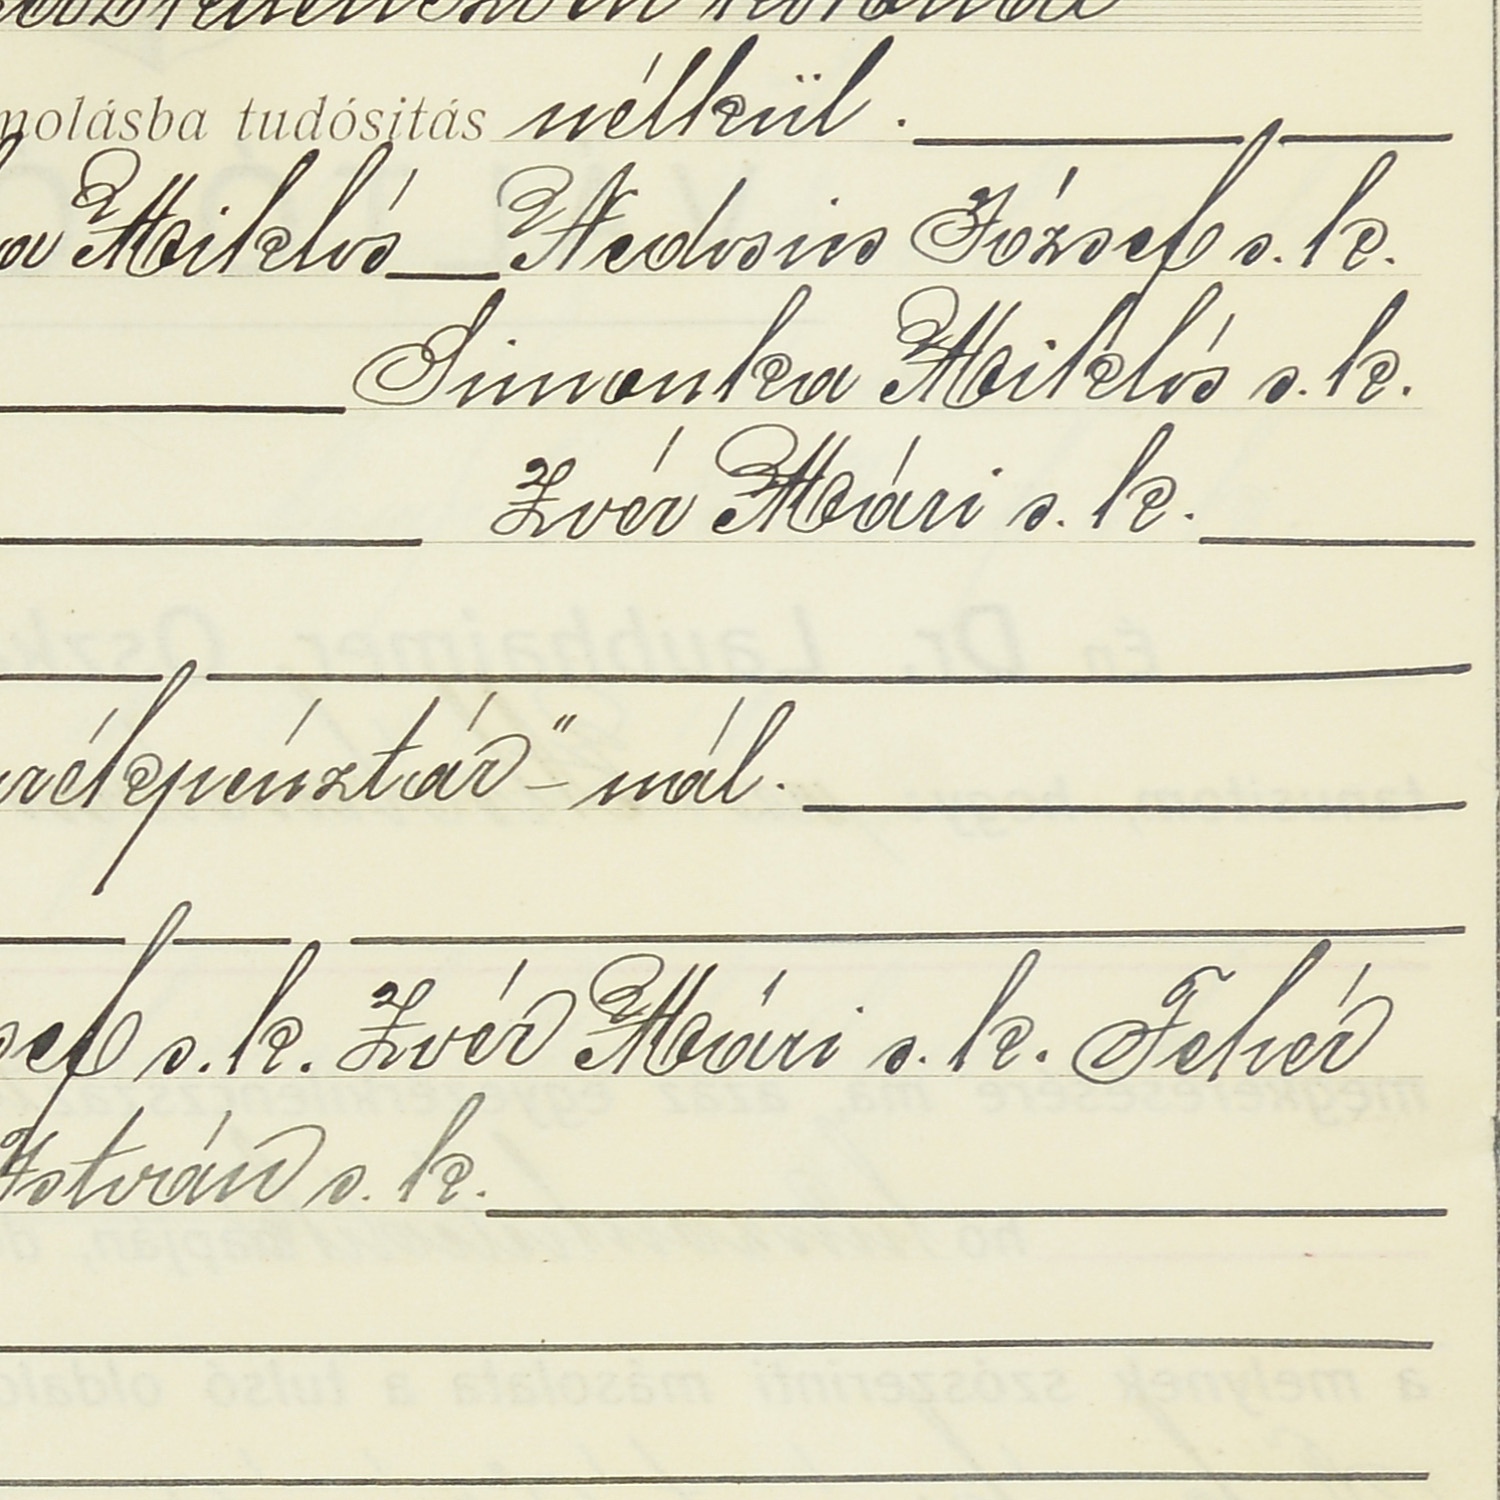 korona
molásba tudósitás nélkül.
a Miklós Nedosius József s. k.
Simonka Miklós s. k.
Zvér Mári s. k.
rékpénztár"-nál.
sef s. k. Zvér Mári s. k. Fehér
István s. k.